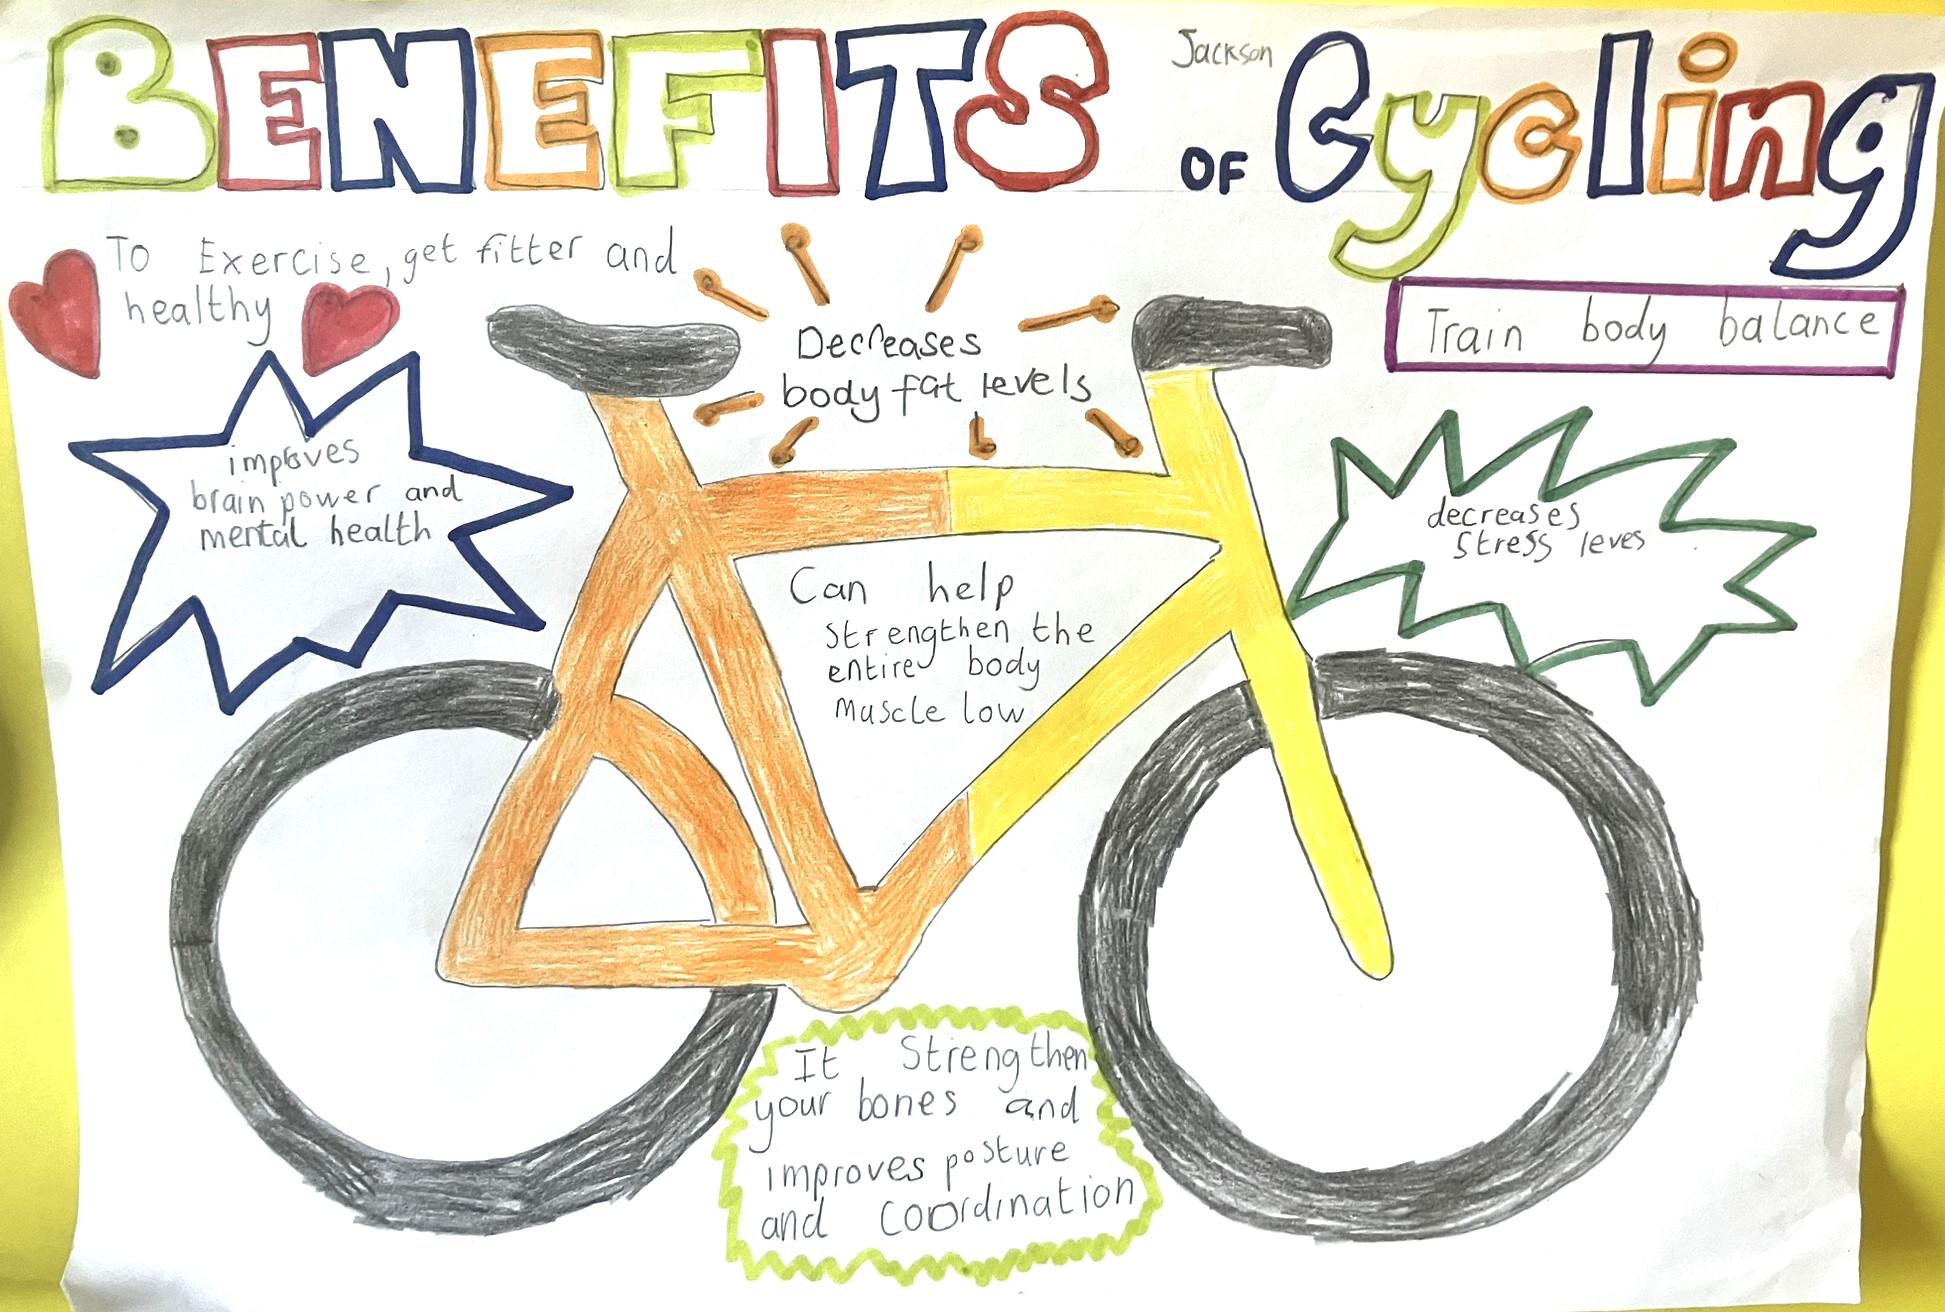 BENEFITS OF Cycling
Jackson
To Exercise, get fitter and
healthy
Decreases
body fat levels
Train body balance
improves
brain power and
mental health
decreases
stress leves
Can help
strengthen the
entire body
muscle low
It Strengthen
your bones and
improves posture
and coordination